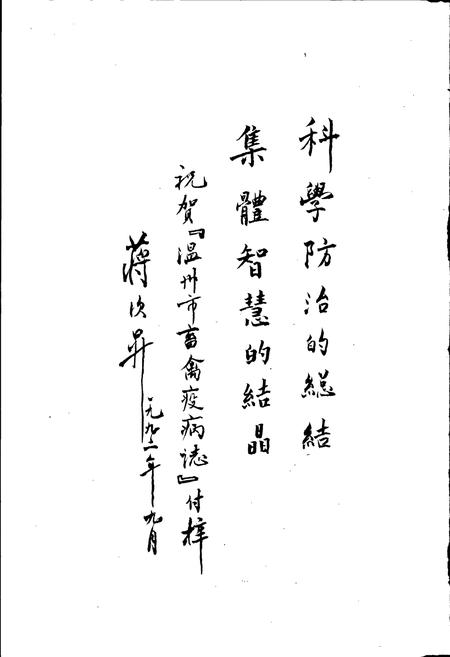 科學防治的總結
集體智慧的結晶
祝賀『温州市畜禽疫病誌』付梓
蔣次昇
一九九二年九月